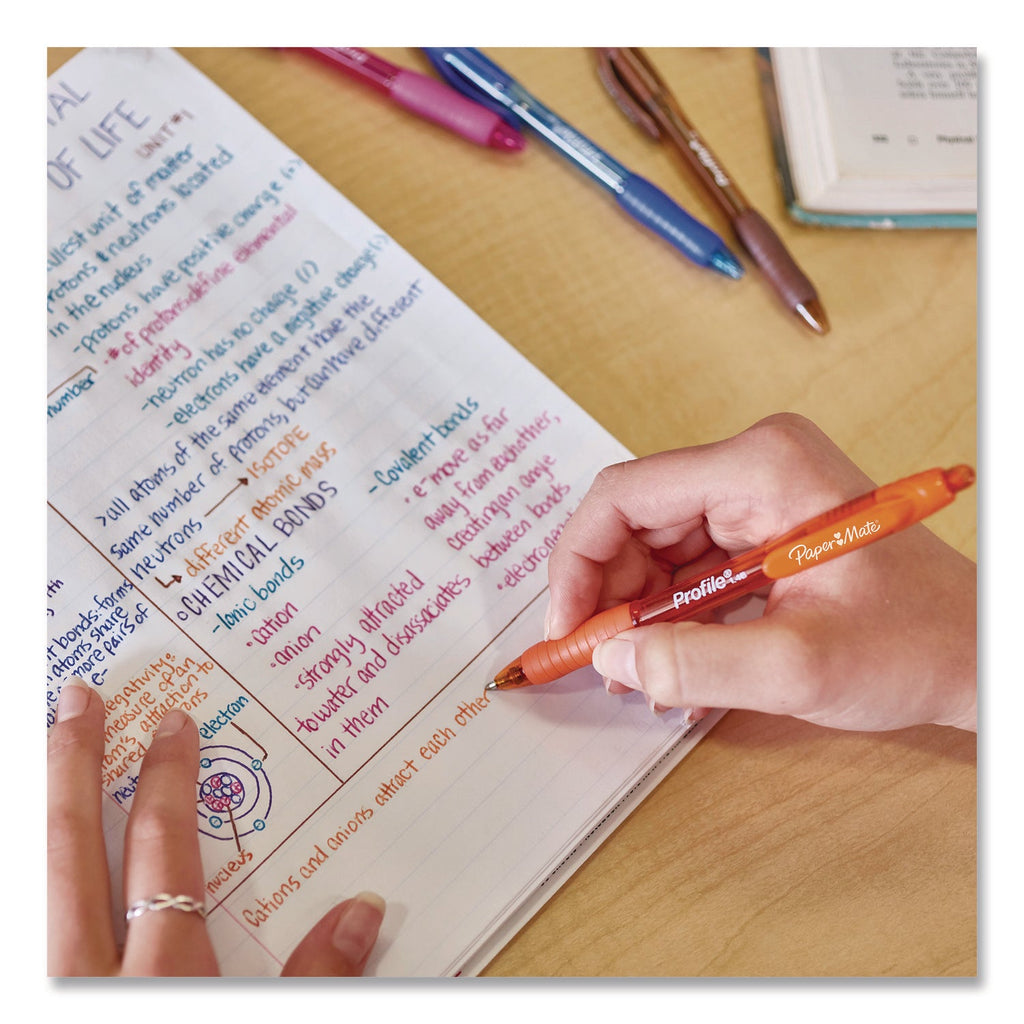 TAL
OF LIFE
UNIT #1
unit of matter
protons & neutrons located
in the nucleus
-protons have positive charge (+)
• # of protons define elemental
identity
-neutron has no charge ( )
-electrons have a negative charge (-)
number
>all atoms of the same element have the
same number of protons, but can have different
neutrons → ISOTOPE
↳ different atomic mass
CHEMICAL BONDS
-Ionic bonds
• cation
• anion
• strongly attracted
to water and disassociates
in them
-Covalent bonds
• e⁻ move as far
away from each other,
creating an angle
between bonds
bonds: forms
atoms share
more pairs of
e-
measure of an
attraction to
shared
electron
nucleus
Cations and anions attract each other
Profile
PaperMate